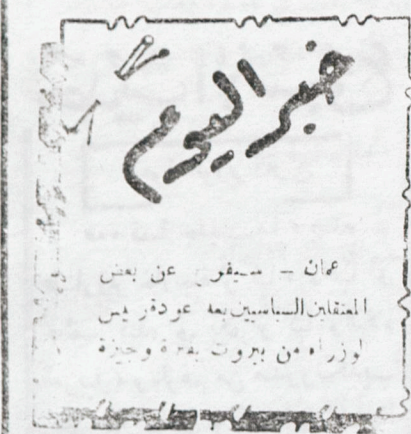 خبر اليوم
عمان – سيفر عن بعض
المعتقلين السياسيين بعد عودة رئيس
لوزراء من بيروت بفترة وجيزة